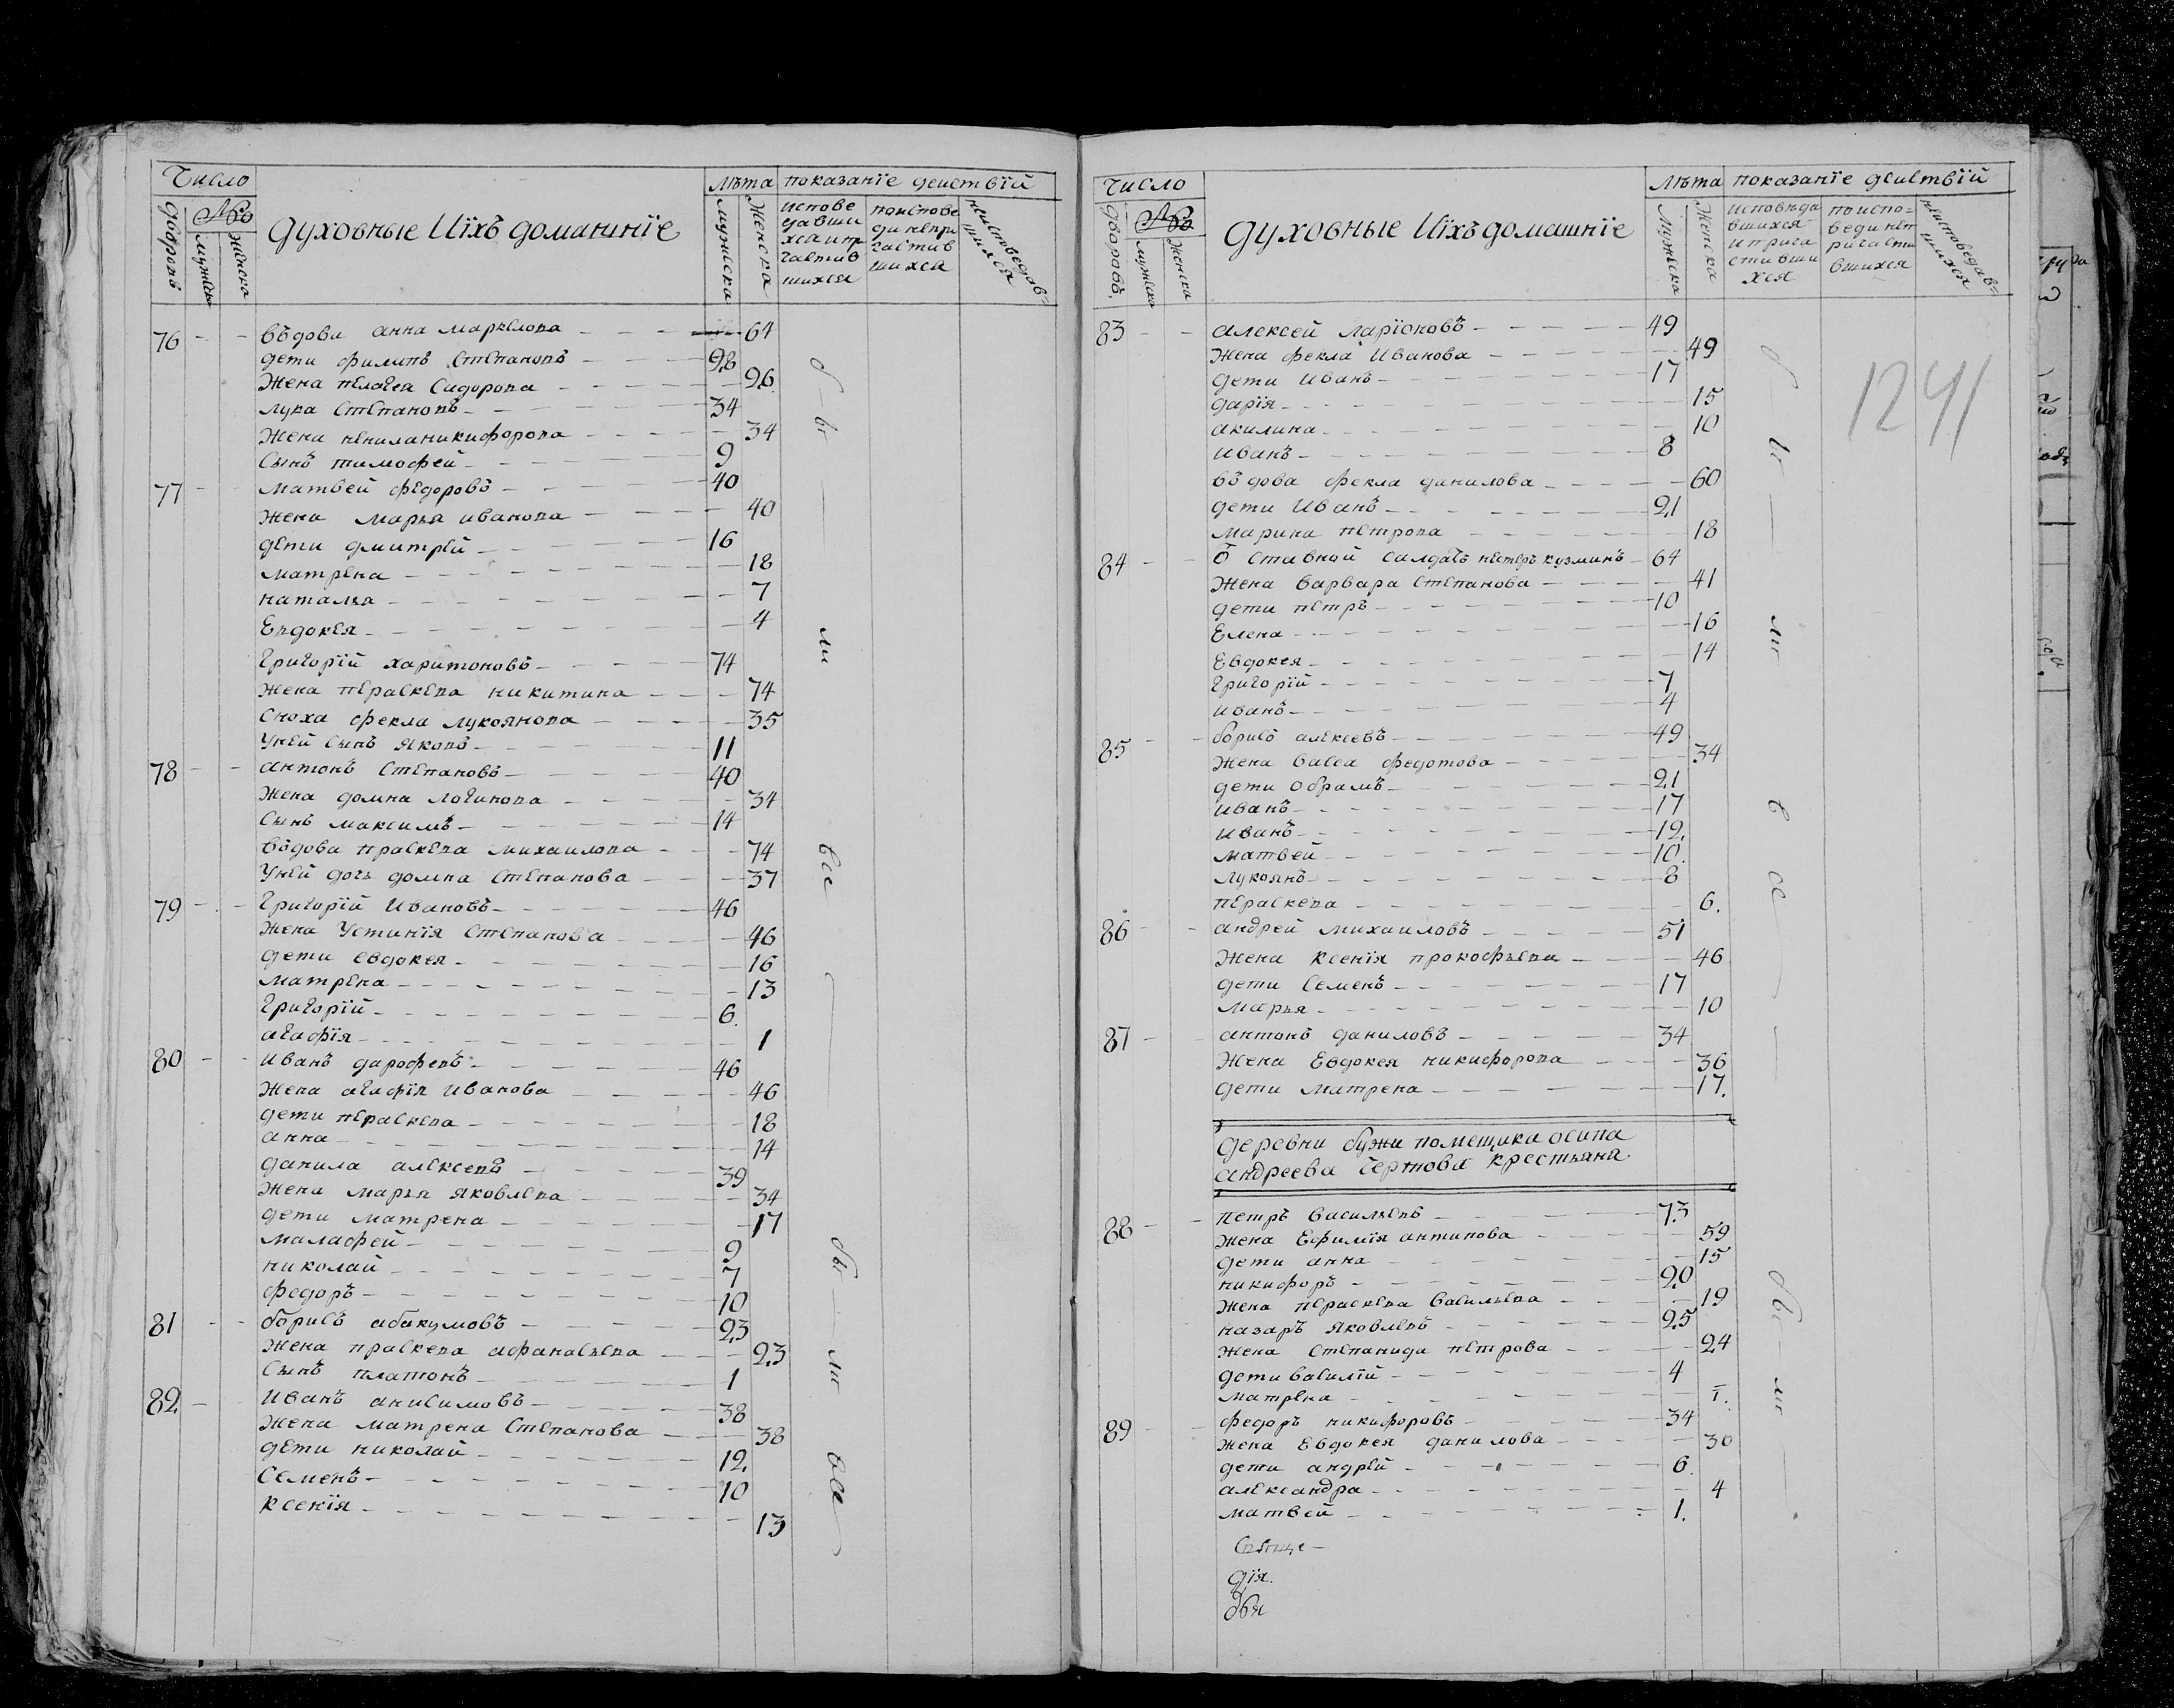 Число
№
дворовъ
мужска
женска
духовные иихъ доманнïе
Лѣта
мужска
женска
показанïе деиствïй
испове
давши
хсаипр
частив
шихся
поиспове
ди непри
частив
шихся
неисповедав=
шихся
76 въдова анна маркелова 64
дети филипъ Степановъ 28
жена пелагея Сидорова 26
лука Степановъ 34
жена ненила никифорова 34
Сынъ тимофей 9
77 матвей федоровъ 40
жена марья иванова 40
дети дмитрей 16
матрена 18
наталья 7
Евдокея 4
Григорïй харитоновъ 74
жена пераскева никитина 74
Сноха фекла лукоянова 35
Уней Сынъ яковъ 11
78 антонъ Степановъ 40
жена домна логинова 34
Сынъ максимъ 14
въдова праскева михаилова 74
Уней дочь домна Степанова 37
79 Григорïй Ивановъ 46
жена Устинïя Степанова 46
дети евдокея 16
матрена 13
Григорïй 6
агафïя 1
80 иванъ дарофевъ 46
жена агафïя иванова 46
дети пераскева 18
анна 14
данила алексевъ 39
жена марья яковлева 34
дети матрена 17
малафей 9
николай 7
федоръ 10
81 борисъ абакумовъ 23
жена праскева афанасьева 23
Сынъ платонъ 1
82 иванъ анисимовъ 38
жена матрена Степанова 38
дети николай 12
Семенъ 10
ксенïя 13
бы
ли
все
бы
ли
все
Число
№
дворавъ
мужска
женска
духовные иихъ домашнïе
Лѣта
мужска
женска
показанïе деиствïй
исповѣда
вшихся
и прича
стивши
хся
поиспо=
веди неп
ричасти
вшихся
неисповедав=
шихся
1241
83 алексей ларïоновъ 49
жена фекла Иванова 49
дети иванъ 17
дарïя 15
акилина 10
иванъ 8
въдова фекла данилова 60
дети иванъ 21
марина петрова 18
84 ѿ ставной салдатъ петеръ кузминъ 64
жена варвара Степанова 41
дети петръ 10
Елена 16
Евдокея 14
Григорïй 7
иванъ 4
85 борисъ алексевъ 49
жена васса федотова 34
дети обрамъ 21
иванъ 17
иванъ 12
матвей 10
лукоянъ 8
пераскева 6
86 андрей михаиловъ 51
жена ксенïя прокофьева 46
дети Семенъ 17
марья 10
87 антонъ даниловъ 34
жена Евдокея никифорова 36
дети матрена 17
деревни бужи помещика осипа
андреева Чертова крестьяна
88 петръ васильевъ 73
жена Ефимïя антипова 59
дети анна 15
никифоръ 20
жена пераскева васильева 19
назаръ яковлевъ 25
жена Степанида петрова 24
дети василïй 4
матрена 1
89 федоръ никифоровъ 34
жена Евдокея данилова 30
дети андрей 6
александра 4
матвей 1
бы
ли
все
бы
ли
дïя